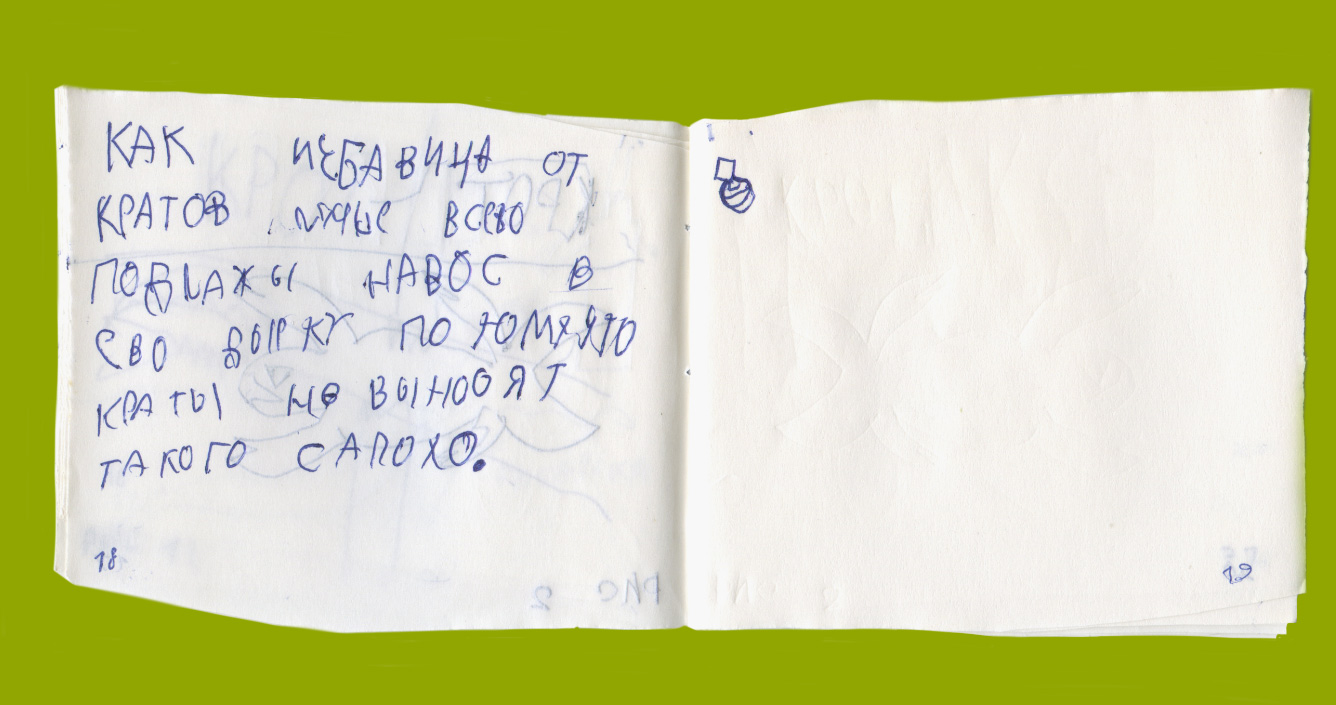 КАК ИЕБАВИЦА ОТ
КРАТОВ ЛУЧЫЕ ВСЕВО
ПОДЛАЖЫ НАВОС В
ЕВО ВЫРКУ ПО
КРАТЫ НЕ ВЫНОСЯТ
ТАКОГО САПОХО.
18
19
РИС 2